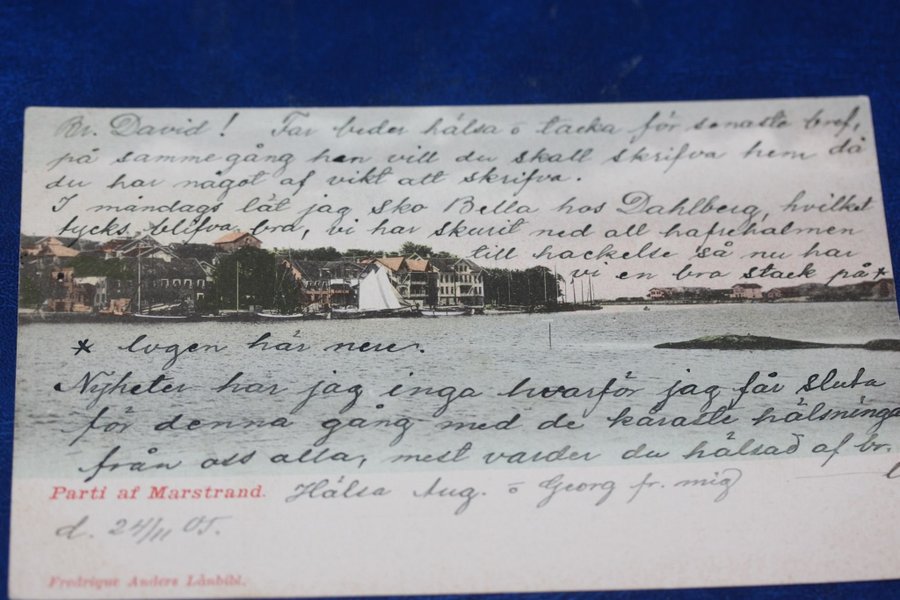 Br. David! Far beder hälsa o tacka för senaste bref,
på samme gång han vill du skall skrifva hem då
du har något af vikt att skrifva.
I måndags lät jag sko Bella hos Dahlberg, hvilket
tycks blifva bra, vi har skurit ned all hafrehalmen
till hackelse så nu har
vi en bra stack på *
* logen här nere.
Nyheter har jag inga hvarför jag får sluta
för denna gång med de käraste hälsninga
från oss alla, mest varder du hälsad af br.
Parti af Marstrand. Hälsa Aug. o Georg fr. mig
d. 24/11 05.
Fredrique Anders Lånbibl.